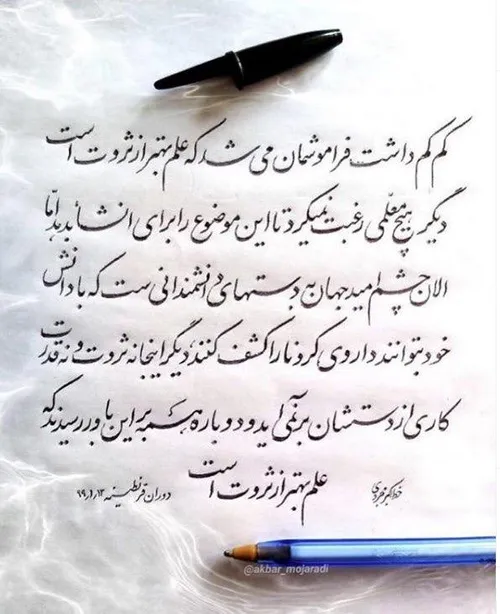 کم کم داشت فراموشمان می شد که علم بهتر از ثروت است
دیگر هیچ معلمی رغبت نمیکرد تا این موضوع را برای انشا بدهد اما
الان چشم امید جهان به دستهای دانشمندانی ست که با دانش
خود بتوانند داروی کرونا را کشف کنند دیگر اینجا نه ثروت و نه قدرت
کاری از دستشان بر نمی آید و دوباره همه به این باور رسیدند که
علم بهتر از ثروت است
خط اکبر مجردی
دوران قرنطینه ۹۹٫۱٫۱۳
@akbar_mojaradi